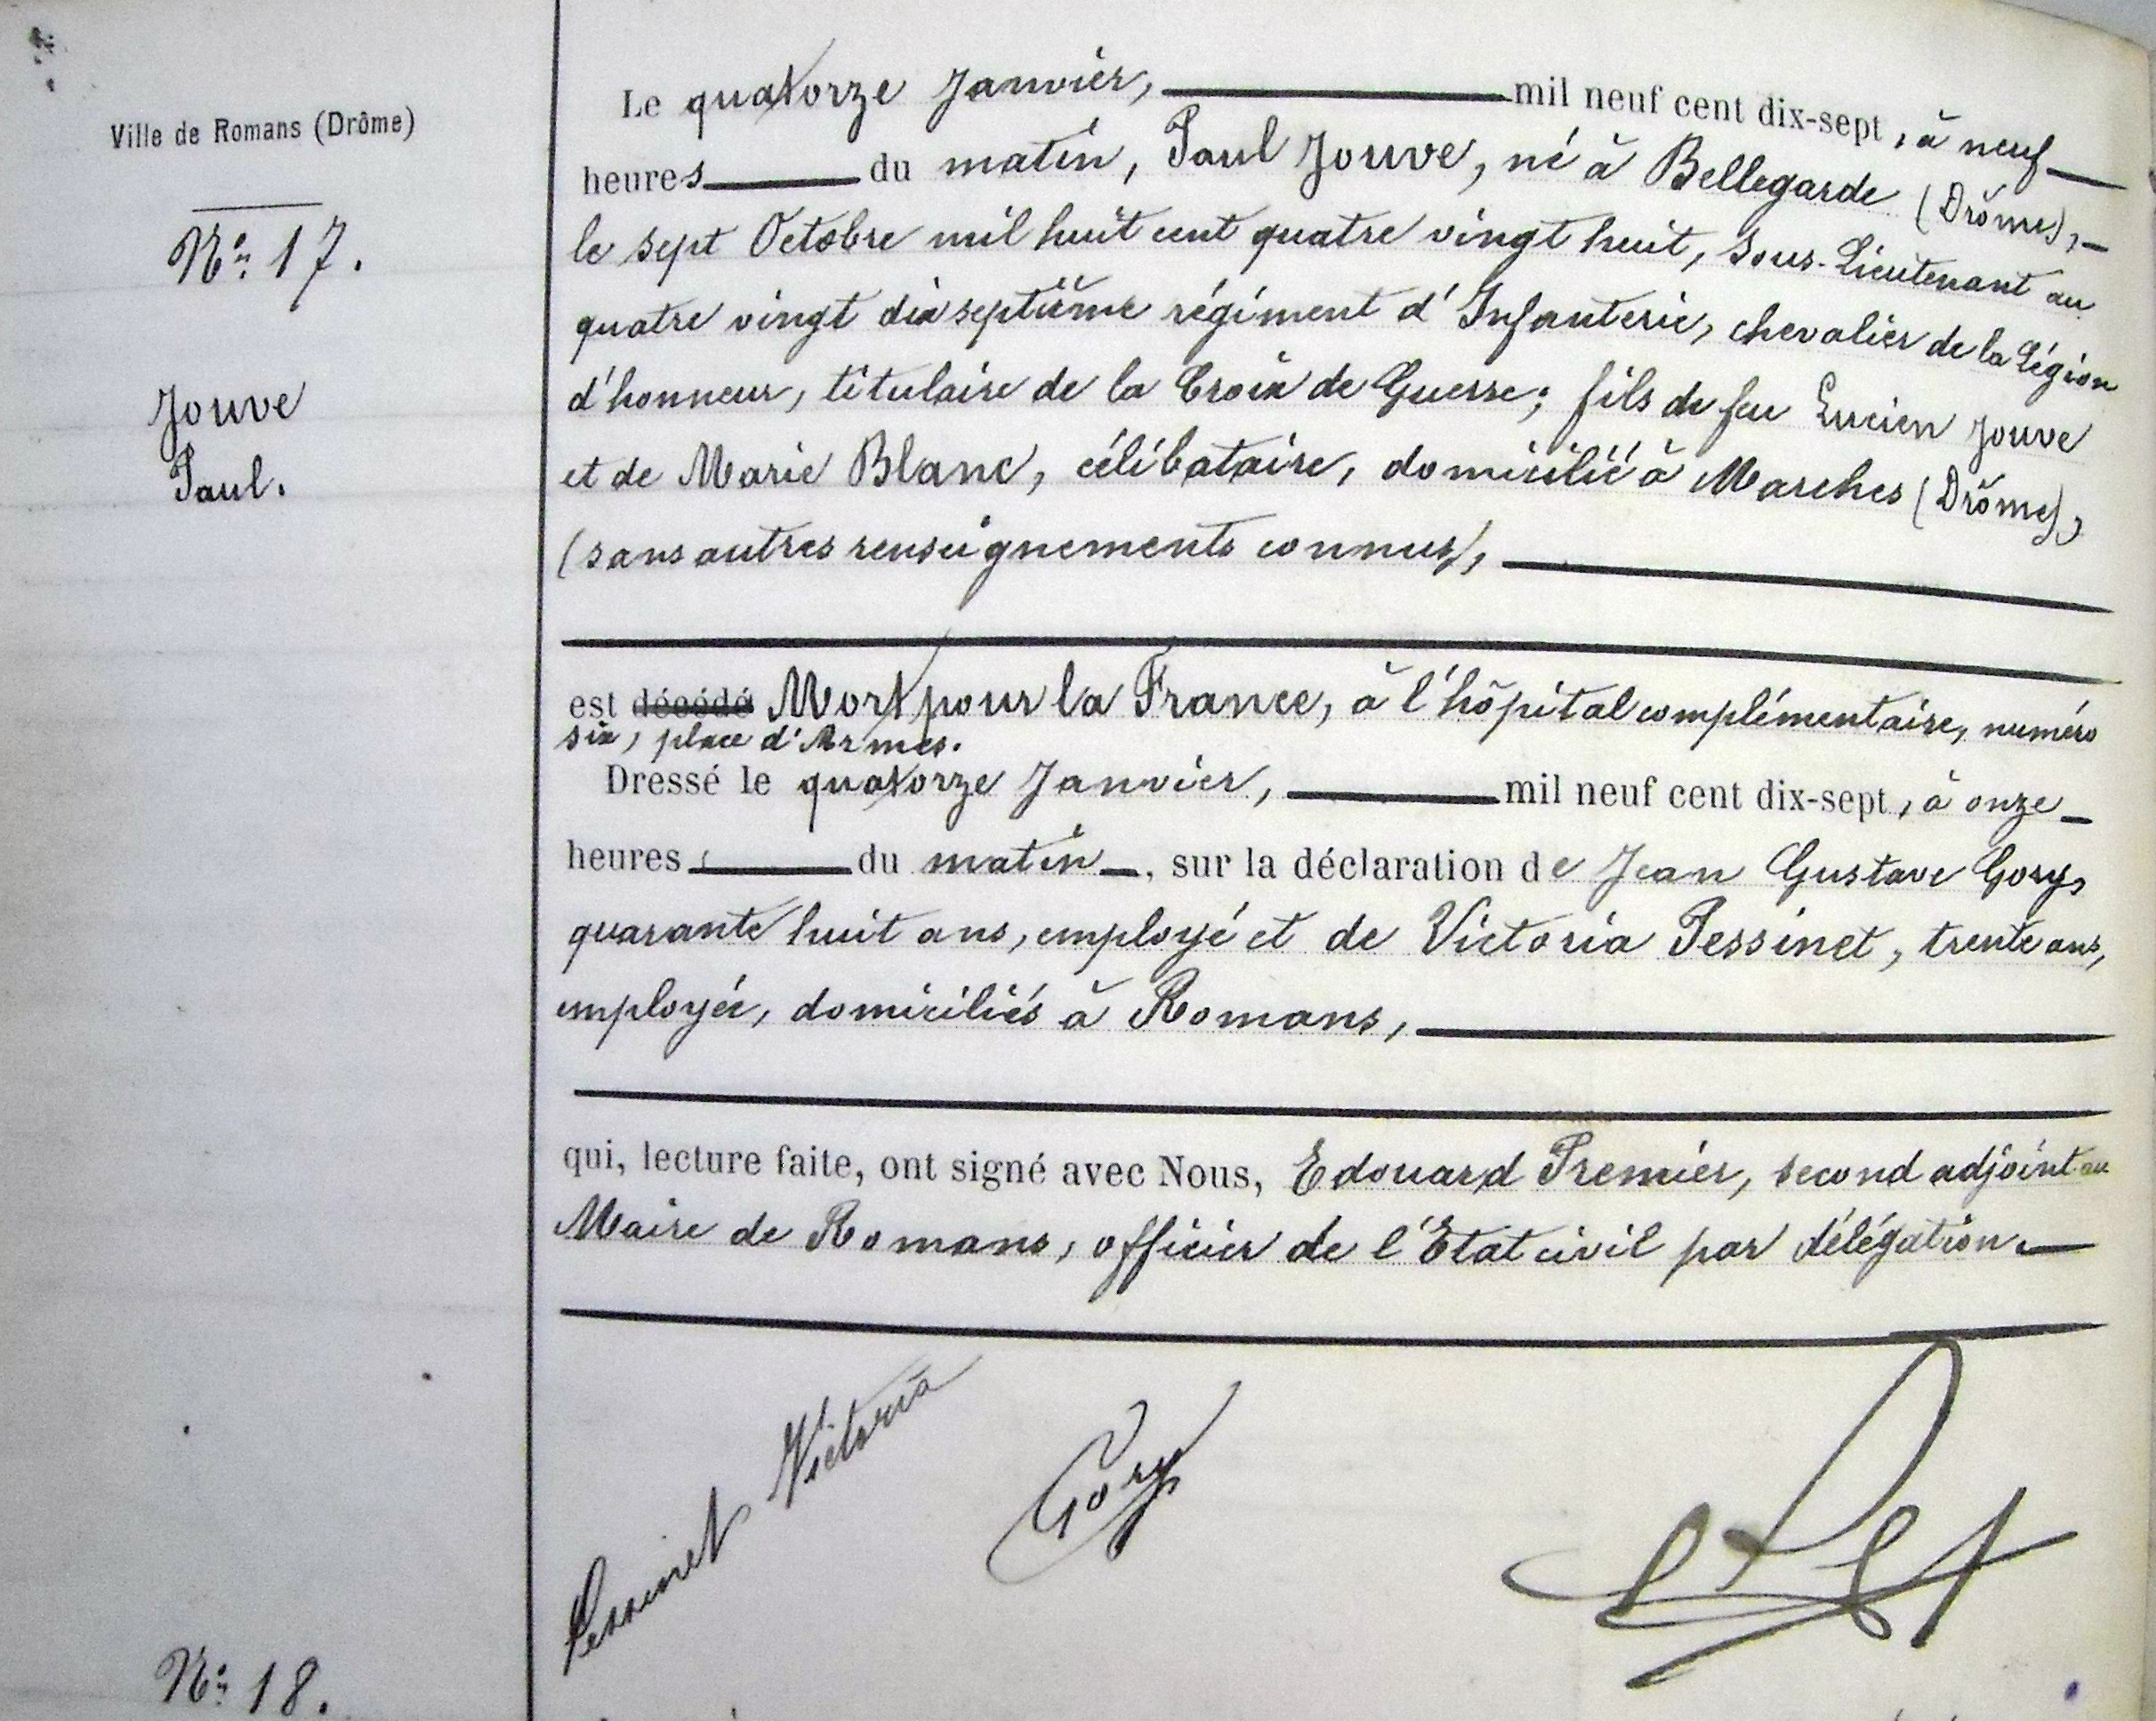 Ville de Romans (Drôme)
N° 17.
Jouve
Paul.
Le quatorze Janvier, mil neuf cent dix-sept, à neuf
heures du matin, Paul Jouve, né à Bellegarde (Drôme),
le sept Octobre mil huit cent quatre vingt huit, Sous-Lieutenant au
quatre vingt dix septième régiment d'Infanterie, chevalier de la Légion
d'honneur, titulaire de la Croix de Guerre; fils de feu Lucien Jouve
et de Marie Blanc, célibataire, domicilié à Marches (Drôme),
(sans autres renseignements connus),
est décédé Mort pour la France, à l'hôpital complémentaire, numéro
six, place d'Armes.
Dressé le quatorze Janvier, mil neuf cent dix-sept, à onze
heures du matin, sur la déclaration de Jean Gustave Gory,
quarante huit ans, employé et de Victoria Pessinet, trente ans,
employée, domiciliés à Romans,
qui, lecture faite, ont signé avec Nous, Edouard Premier, second adjoint au
Maire de Romans, officier de l'Etat civil par délégation.
Pessinet Victoria
Gory
N° 18.